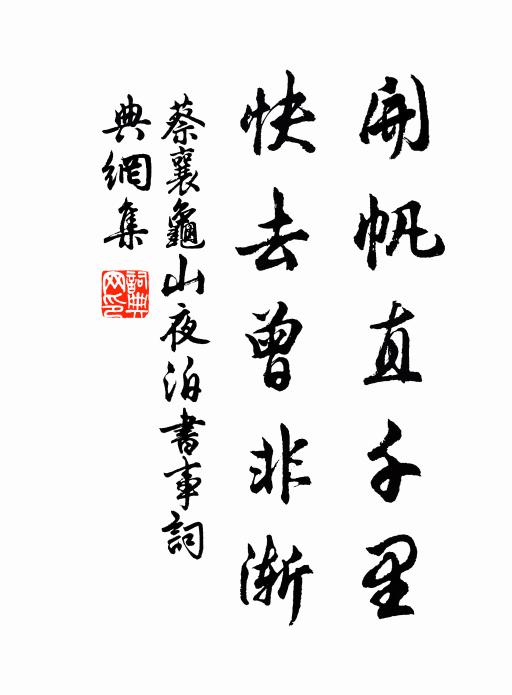 開帆直千里
快去曾非漸
蔡襄龜山夜泊書事詞
典網集
詞典网印